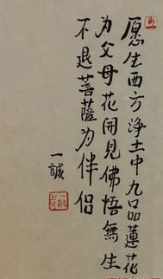 愿生西方净土中九品蓮花
为父母花開見佛悟無生
不退菩薩为伴侣
一誠